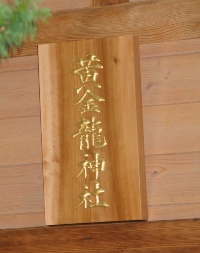 黄金龍神社